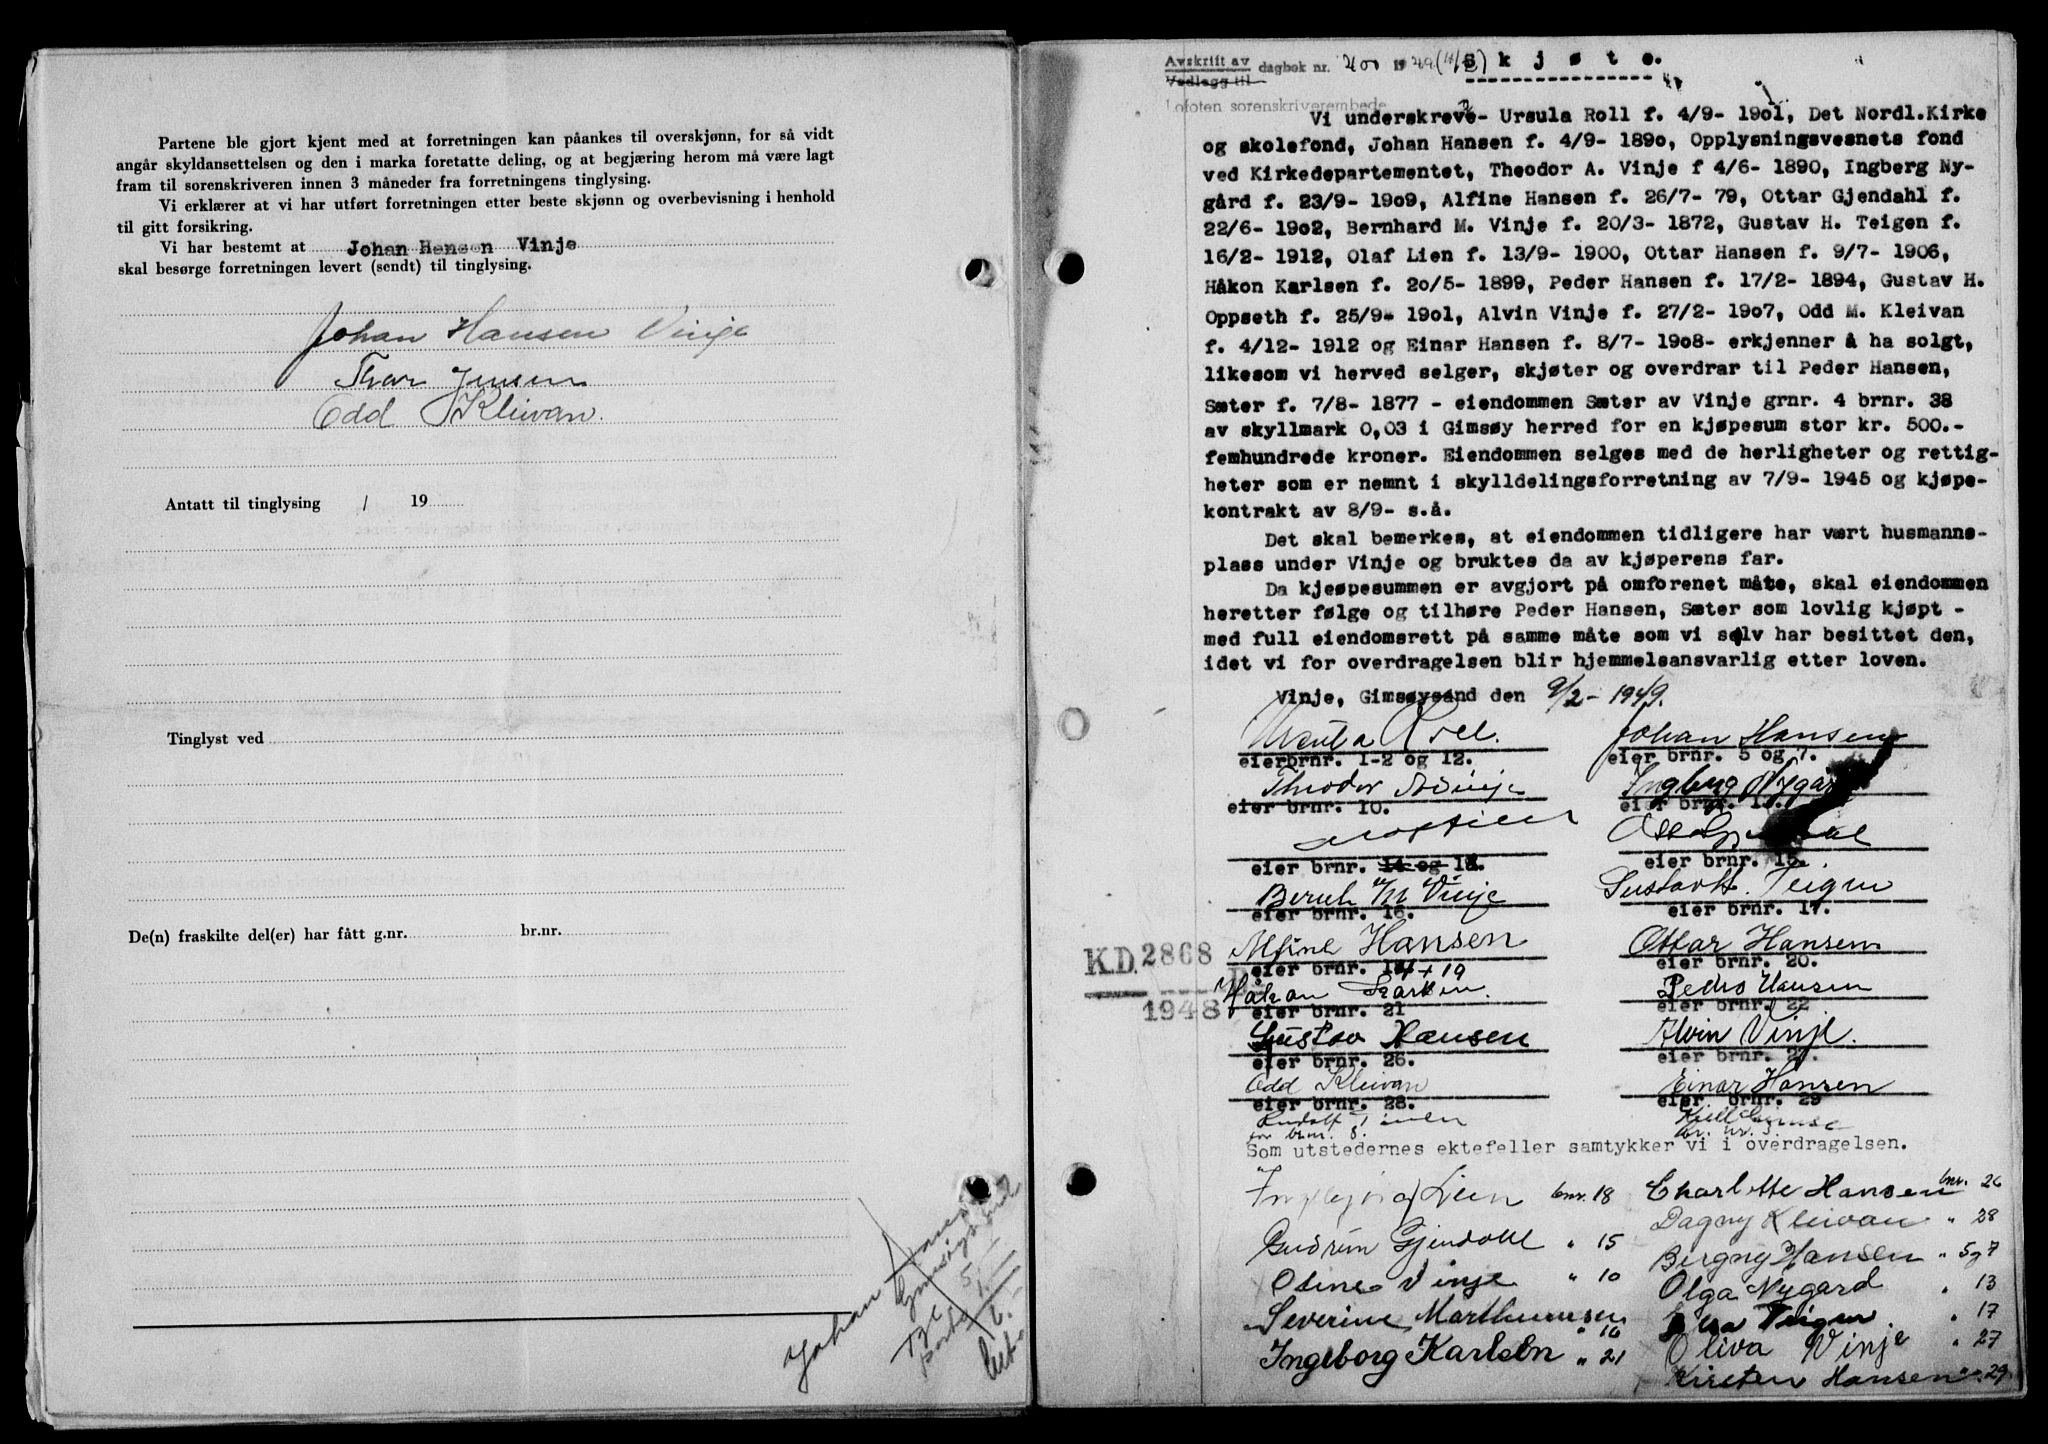 Partene ble gjort kjent med at forretningen kan påankes til overskjønn, for så vidt
angår skyldansettelsen og den i marka foretatte deling, og at begjæring herom må være lagt
fram til sorenskriveren innen 3 måneder fra forretningens tinglysing.
Vi erklærer at vi har utført forretningen etter beste skjønn og overbevisning i henhold
til gitt forsikring.
Vi har bestemt at Johan Hansen Vinje
skal besørge forretningen levert (sendt) til tinglysing.
Johan Hansen Vinje
Jensen
Odd Kleivan.
Antatt til tinglysing / 19
Tinglyst ved
De(n) fraskilte del(er) har fått g.nr. br.nr.
Johan Hansen
Gimsøysand
5.-
1.-
6.-
Avskrift av
Vedlegg til
dagbok nr. 200 1949 (11/2) Skjøte.
Lofoten sorenskriverembede
Vi underskrevne- Ursula Roll f. 4/9- 1901, Det Nordl.Kirke
og skolefond, Johan Hansen f. 4/9- 1890, Opplysningsvesnets fond
ved Kirkedepartementet, Theodor A. Vinje f 4/6- 1890, Ingberg Ny-
gård f. 23/9- 1909, Alfine Hansen f. 26/7- 79, Ottar Gjendahl f.
22/6- 1902, Bernhard M. Vinje f. 20/3- 1872, Gustav H. Teigen f.
16/2- 1912, Olaf Lien f. 13/9- 1900, Ottar Hansen f. 9/7- 1906,
Håkon Karlsen f. 20/5- 1899, Peder Hansen f. 17/2- 1894, Gustav H.
Oppseth f. 25/9- 1901, Alvin Vinje f. 27/2- 1907, Odd M. Kleivan
f. 4/12- 1912 og Einar Hansen f. 8/7- 1908- erkjenner å ha solgt,
likesom vi herved selger, skjøter og overdrar til Peder Hansen,
Sæter f. 7/8- 1877 - eiendommen Sæter av Vinje grnr. 4 brnr. 38
av skyllmark 0,03 i Gimsøy herred for en kjøpesum stor kr. 500.-
femhundrede kroner. Eiendommen selges med de herligheter og rettig-
heter som er nemnt i skylldelingsforretning av 7/9- 1945 og kjøpe-
kontrakt av 8/9- s.å.
Det skal bemerkes, at eiendommen tidligere har vært husmanns-
plass under Vinje og bruktes da av kjøperens far.
Da kjeøpesummen er avgjort på omforenet måte, skal eiendommen
heretter følge og tilhøre Peder Hansen, Sæter som lovlig kjøpt -
med full eiendomsrett på samme måte som vi selv har besittet den,
idet vi for overdragelsen blir hjemmelsansvarlig etter loven.
Vinje, Gimsøysand den 9/2- 1949.
Ursula Roll. Johan Hansen
eierbrnr. 1-2 og 12. eier brnr. 5 og 7.
Theodor A Vinje Ingberg Nygård
eier brnr. 10. eier brnr. 13.
eier brnr. 14 og 18. eier brnr. 15.
Bernh M Vinje Gustav H. Teigen
eier brnr. 16. eier brnr. 17.
Alfine Hansen Ottar Hansen
eier brnr. 14 + 19 eier brnr. 20.
K.D. 2868
1948
Håkon Karlsen. Pedro Hansen
eier brnr. 21 eier brnr. 22
Gustav Hansen Alvin Vinje.
eier brnr. 26. eier brnr. 27.
Odd Kleivan Einar Hansen
eier brnr. 28. eier brnr. 29
Rudolf
for brnr. 8. br. nr. 3.
Som utstedernes ektefeller samtykker vi i overdragelsen.
Lien bnr. 18 Charlotte Hansen bnr. 26
Dagny Kleivan " 28
Gudrun Gjendahl " 15 Bergny Hansen " 5 og 7
Oline Vinje " 10 Olga Nygård " 13
Severine Marthinussen " 16 Teigen " 17
Ingeborg Karlsen " 21 Oliva Vinje " 27
Kirsten Hansen " 29